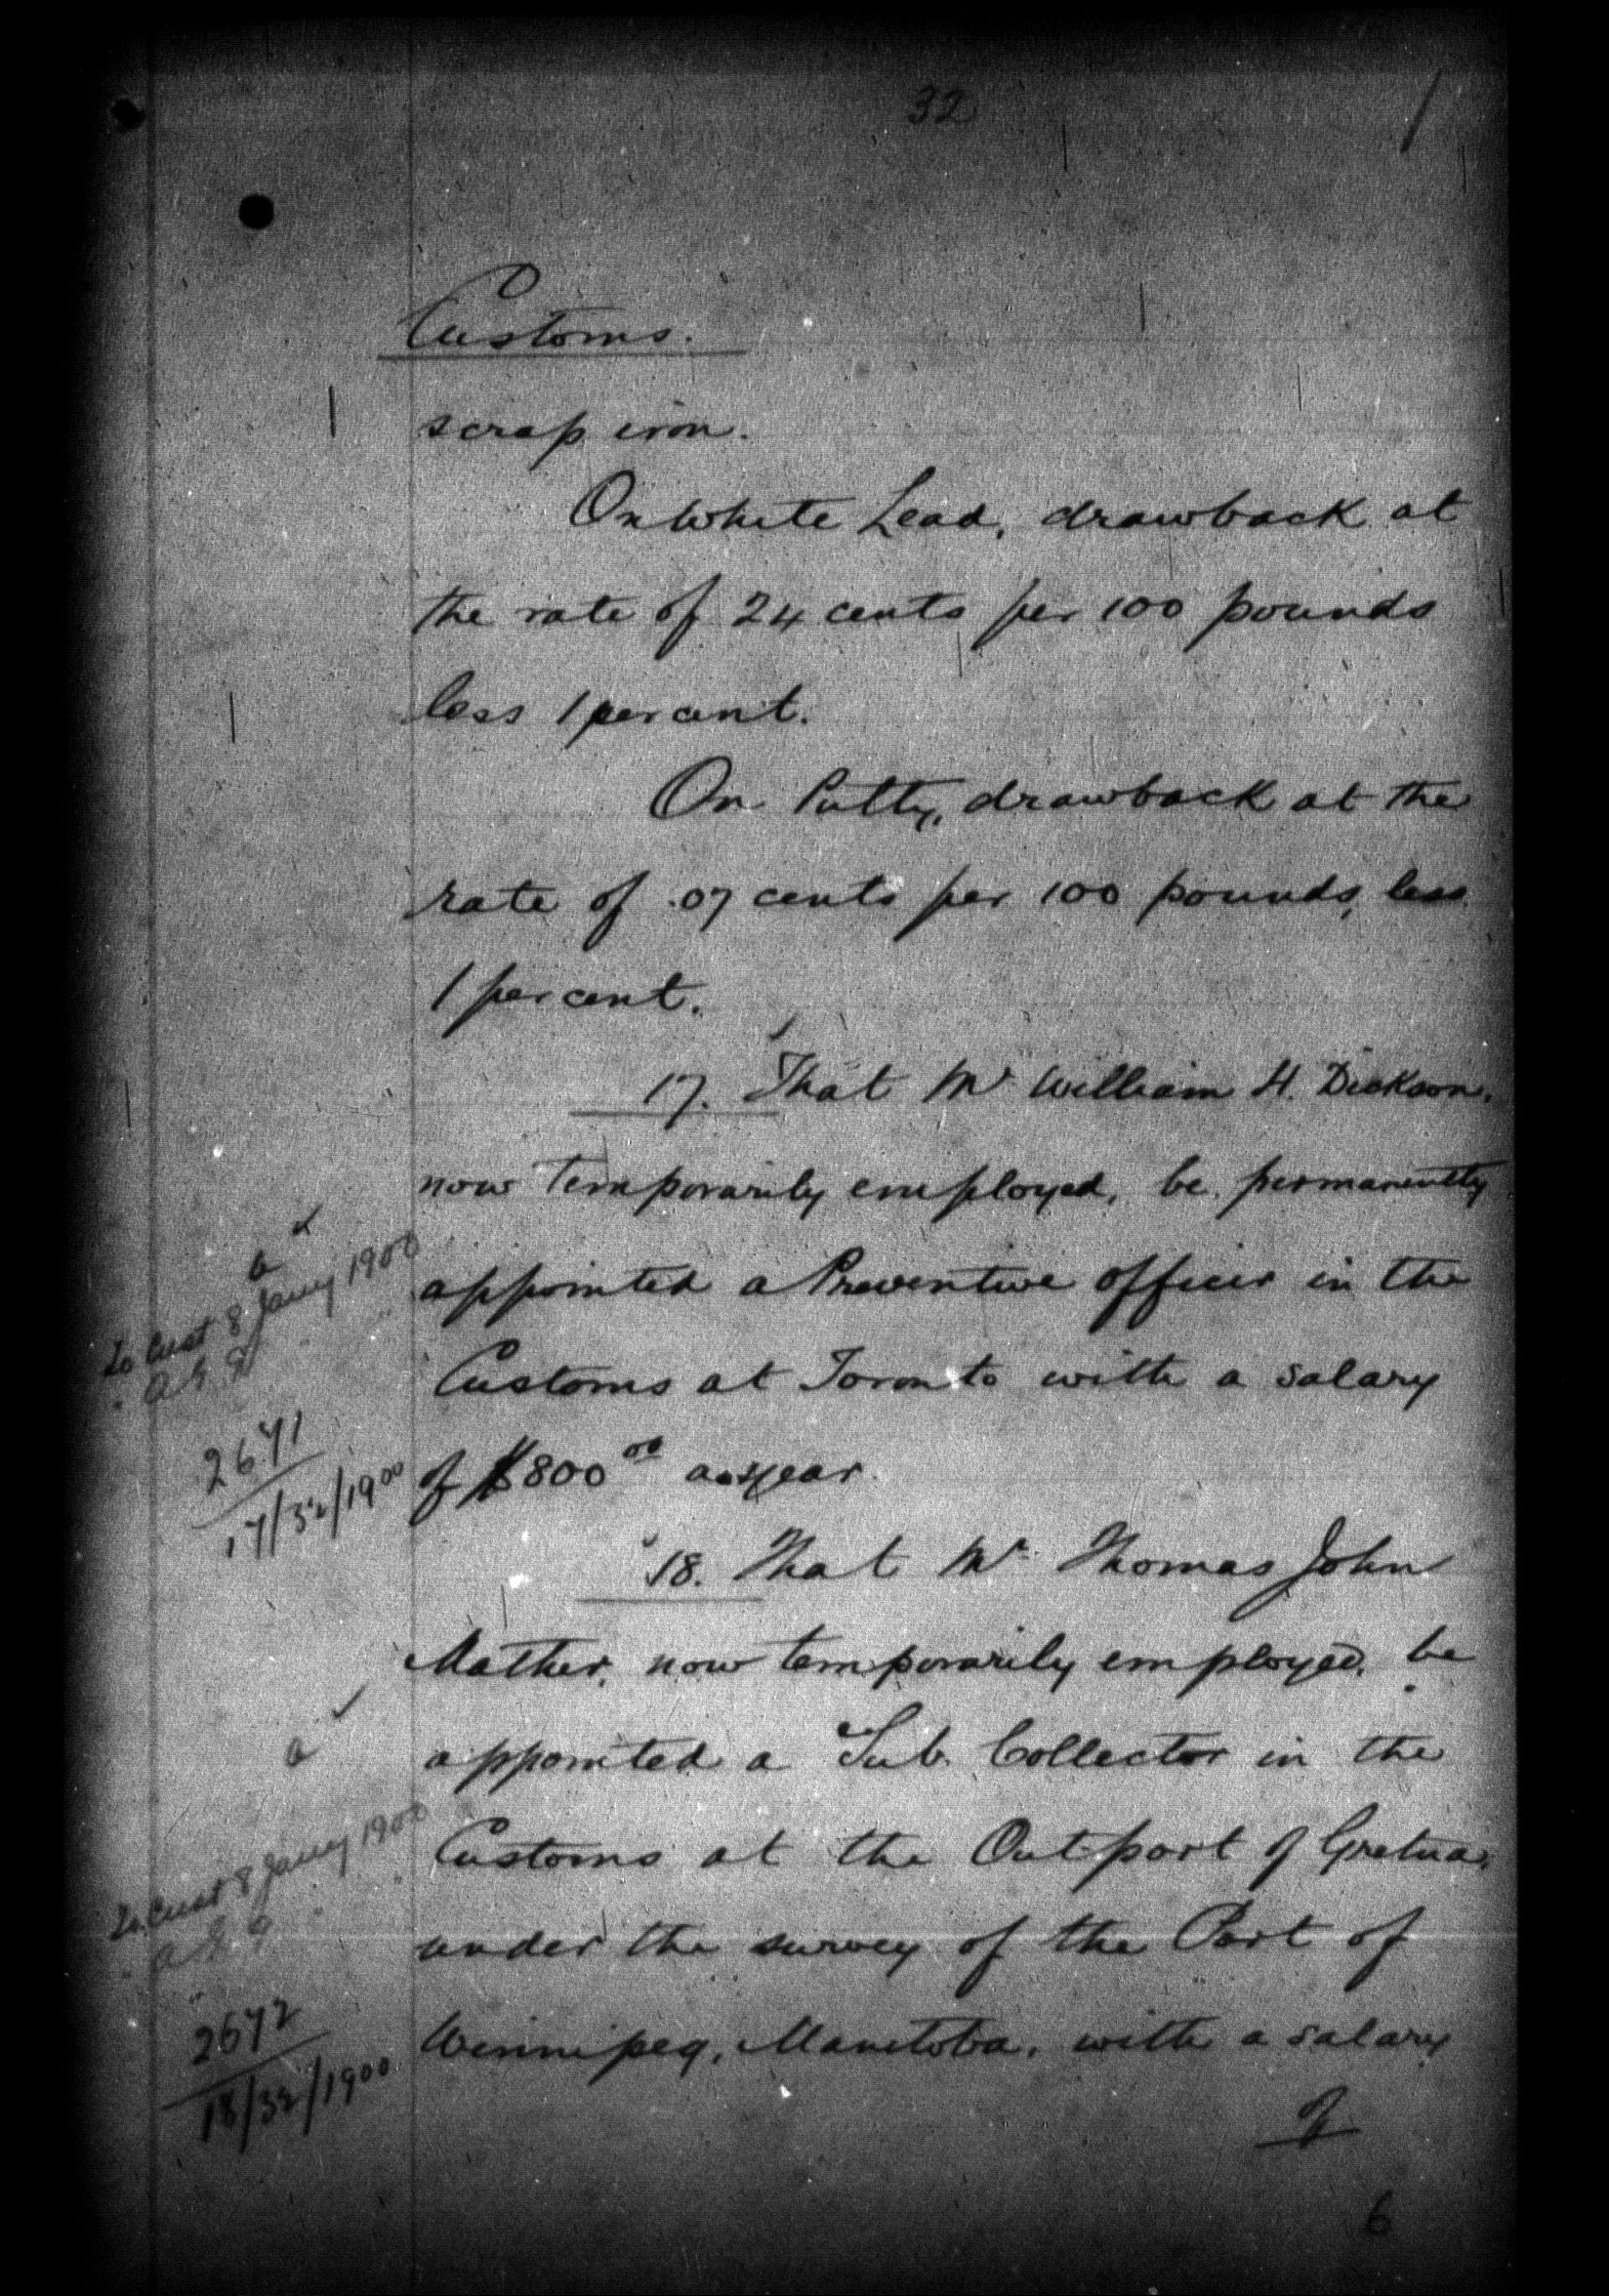 32
Customs.
scrap iron.
On White Lead, drawback at
the rate of 24 cents per 100 pounds
less 1 per cent.
On Putty, drawback at the
rate of .07 cents per 100 pounds, less
1 per cent.
17. That Mr William H. Dickson,
now temporarily employed, be permanently
a
To Cust 8 Jany 1900
appointed a Preventive officer in the
" A.G. "
Customs at Toronto with a salary
2671
17/32/1900
of $800 00 a year.
18. That Mr Thomas John
Mather, now temporarily employed, be
a
appointed a Sub. Collector in the
To Cust 8 Jany 1900
Customs at the Outport of Gretna,
" A.G. "
under the survey of the Port of
2672
18/32/1900
Winnipeg, Manitoba, with a salary
of
6